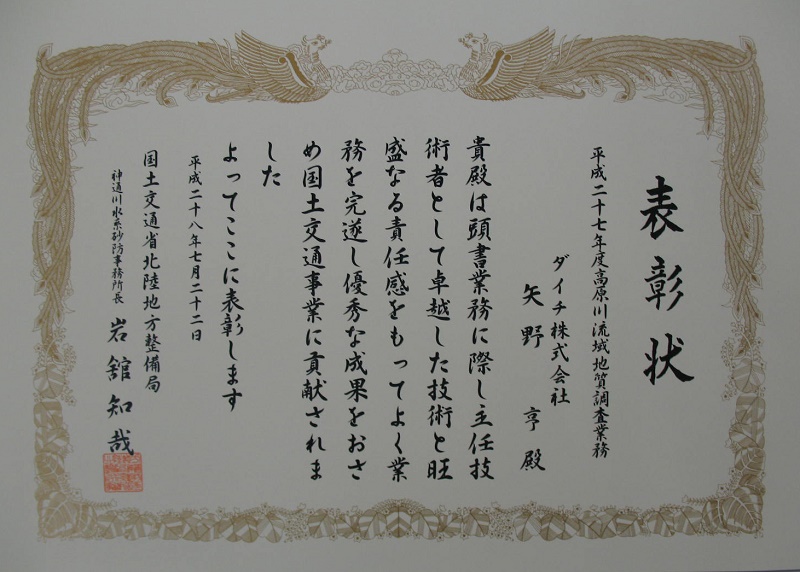 表彰状
平成二十七年度高原川流域地質調査業務
ダイチ株式会社
矢野 亨 殿
貴殿は頭書業務に際し主任技
術者として卓越した技術と旺
盛なる責任感をもってよく業
務を完遂し優秀な成果をおさ
め国土交通事業に貢献されま
した
よってここに表彰します
平成二十八年七月二十二日
国土交通省北陸地方整備局
神通川水系砂防事務所長
岩舘知哉